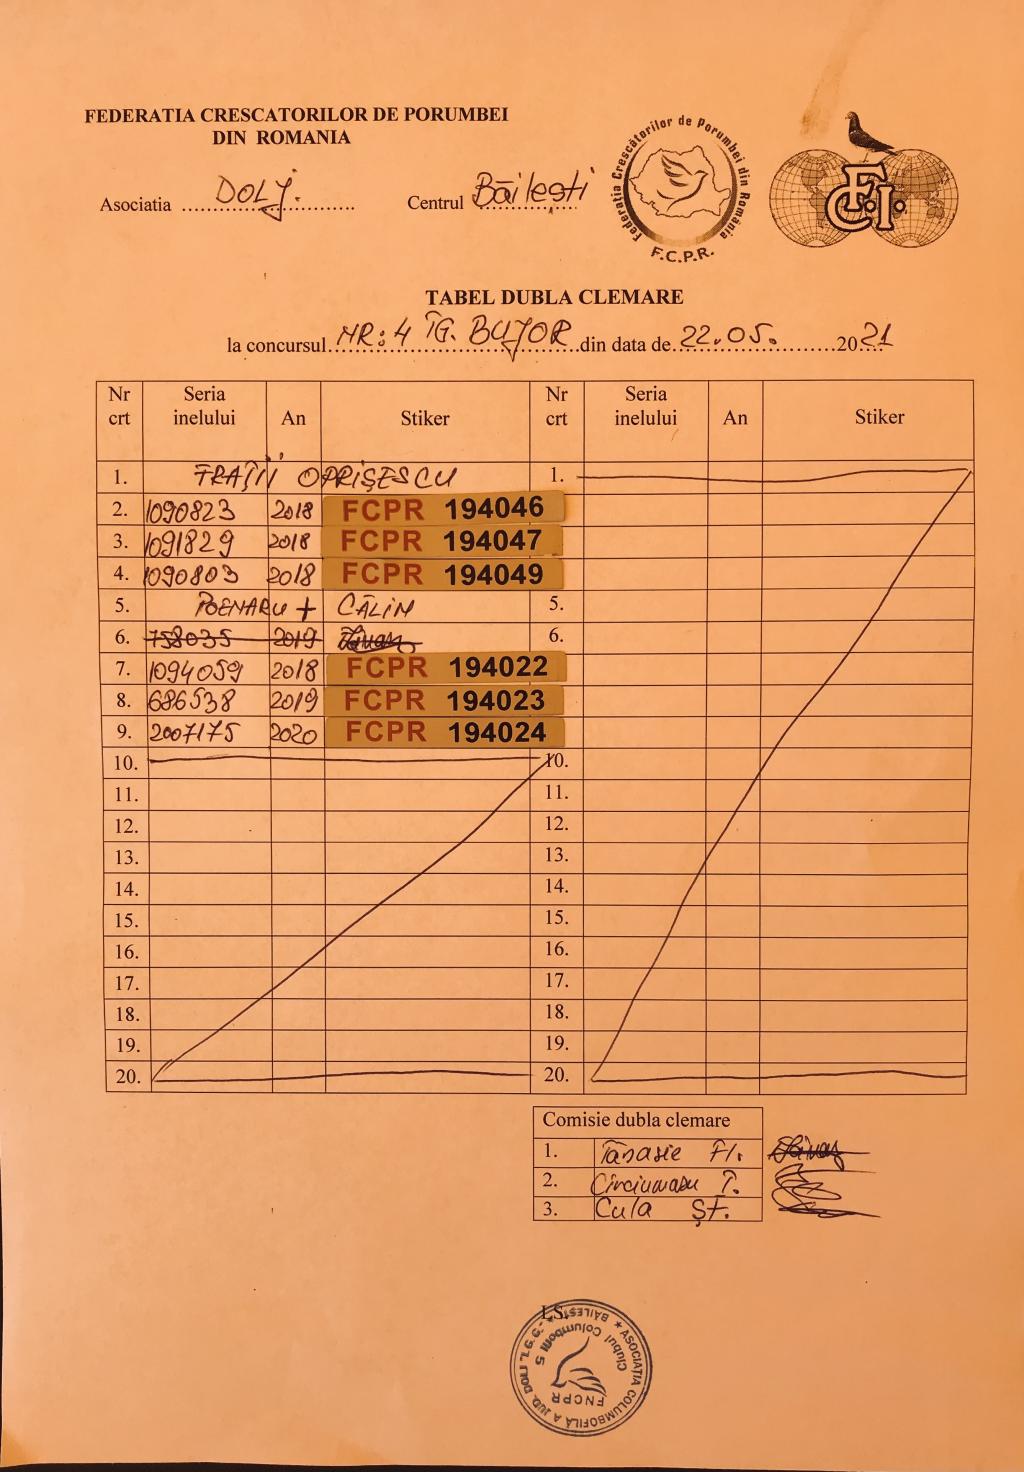 FEDERATIA CRESCATORILOR DE PORUMBEI
DIN ROMANIA
Asociatia DOLJ.
Centrul Băilești
Federatia Crescătorilor de Porumbei din România
F.C.P.R.
F.C.I.
TABEL DUBLA CLEMARE
la concursul NR: 4 TG. BUJOR din data de 22.05. 2021
Nr crt Seria inelului An Stiker Nr crt Seria inelului An Stiker
1. FRAȚII OPRIȘESCU 1.
2. 1090823 2018 FCPR 194046
3. 1091829 2018 FCPR 194047
4. 1090803 2018 FCPR 194049
5. POENARU + CĂLIN 5.
6. 758035 2019 6.
7. 1094059 2018 FCPR 194022
8. 686538 2019 FCPR 194023
9. 2007175 2020 FCPR 194024
10. 10.
11. 11.
12. 12.
13. 13.
14. 14.
15. 15.
16. 16.
17. 17.
18. 18.
19. 19.
20. 20.
Comisie dubla clemare
1. Tănasie Fl.
2. Cîrciumaru T.
3. Cula ȘT.
LS.
ASOCIAȚIA COLUMBOFILĂ A JUD. DOLJ
BĂILEȘTI
Clubul Columbofil 5
FNCPR